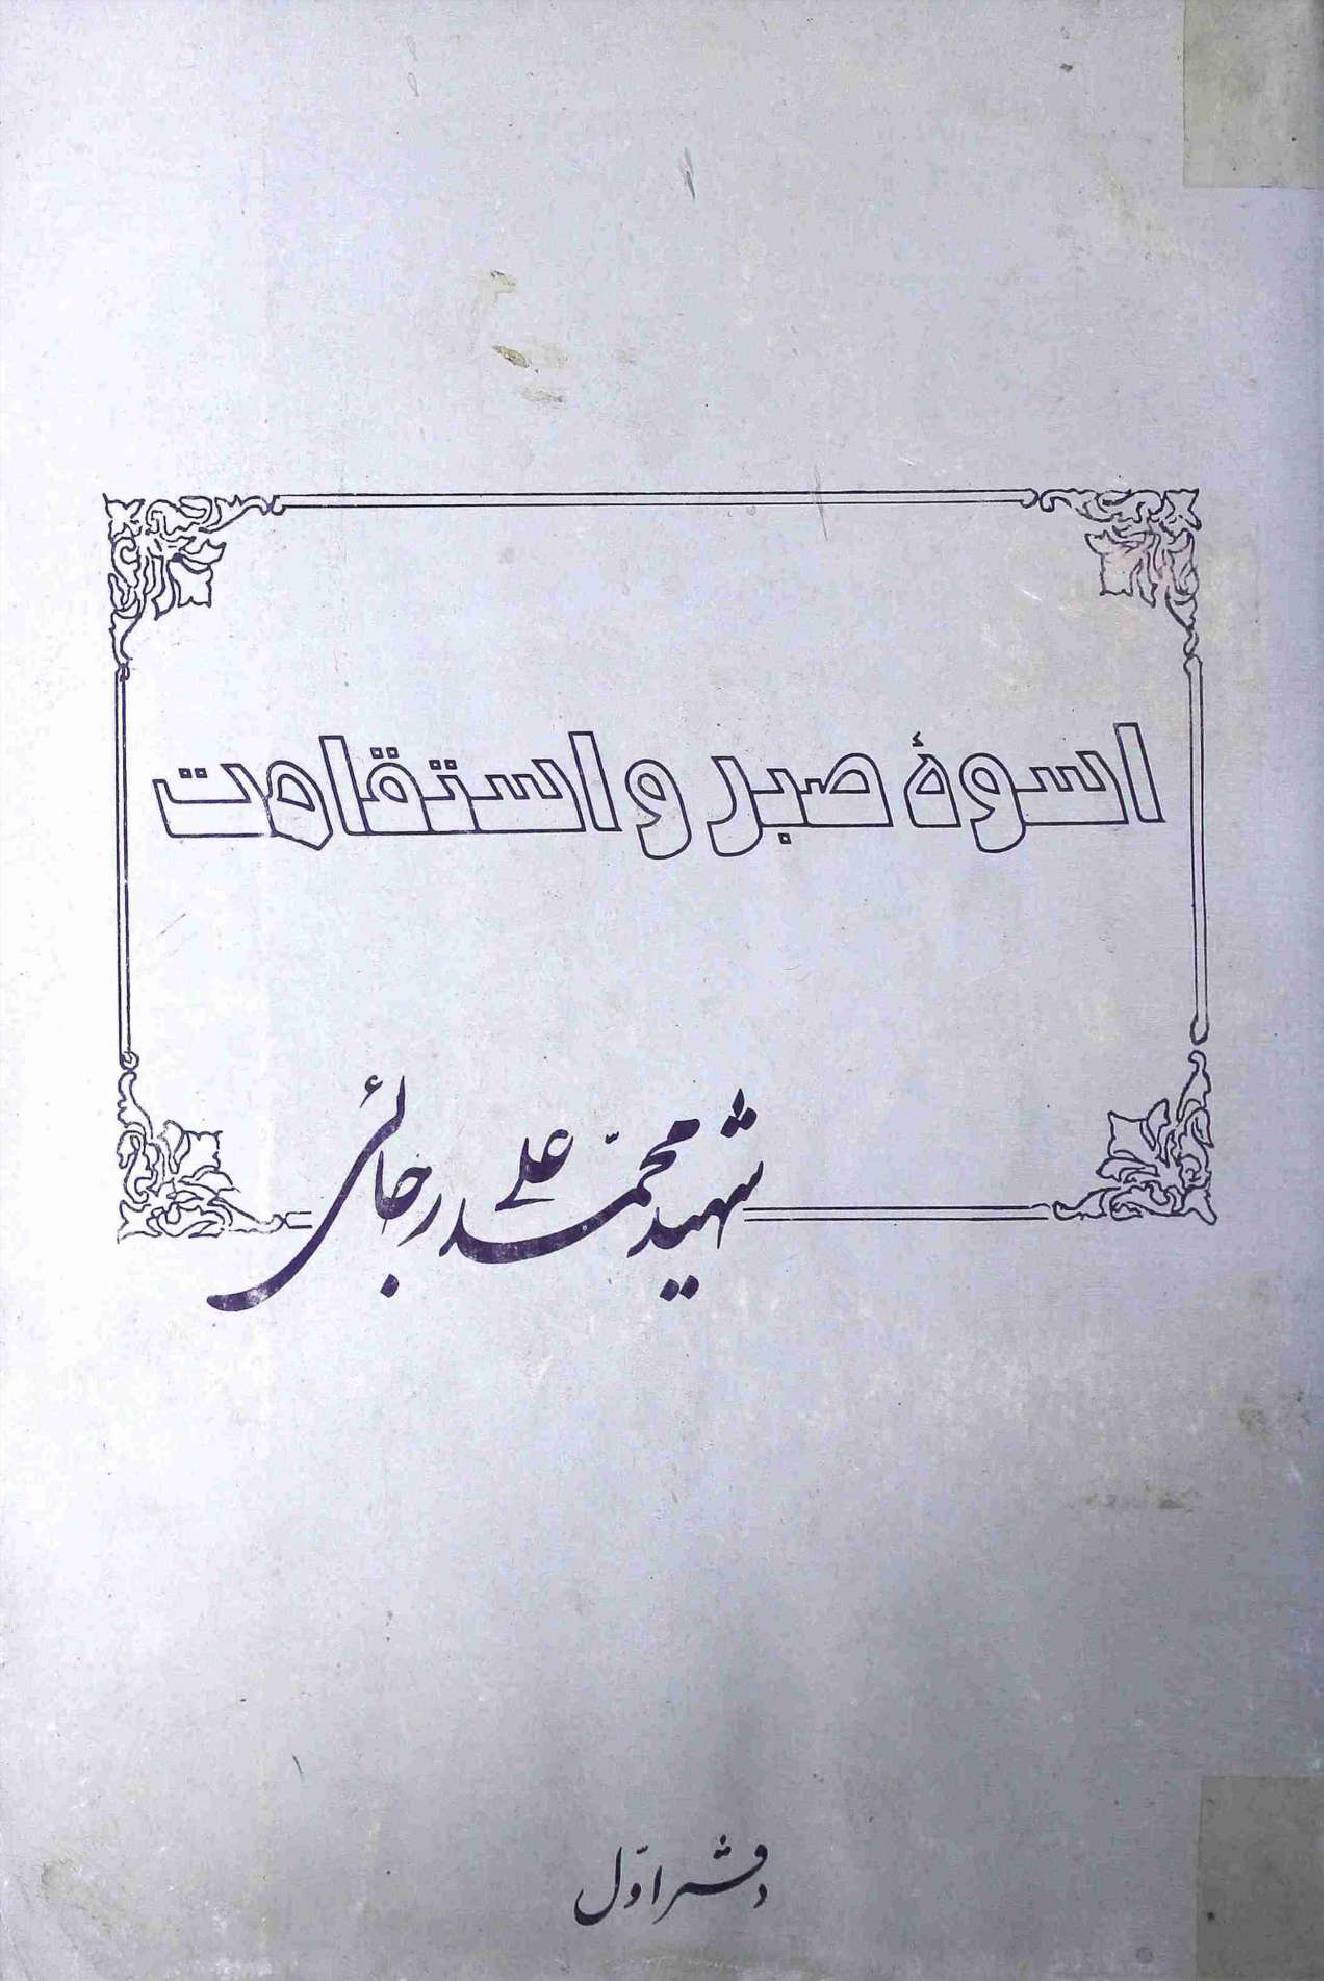 اسوهٔ صبر و استقامت
شهید محمّد علی رجائی
دفتر اوّل